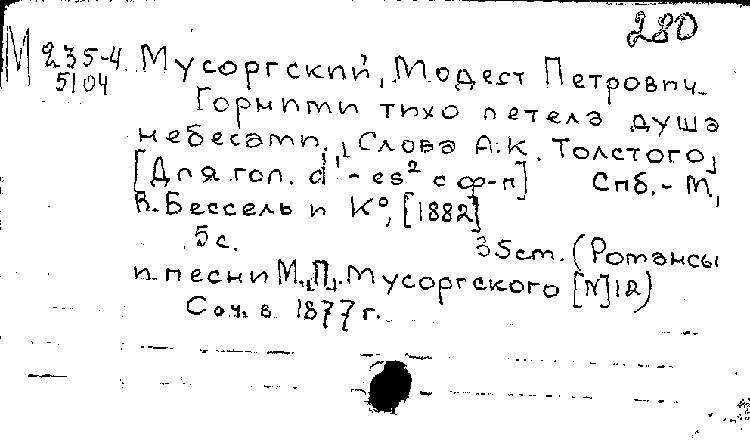 280
М 235-4 Мусоргский, Модест Петрович.
5104 Горними тихо летела душа
небесами., Слова А.К. Толстого,
[Для гол. d¹-es² с ф-п] Спб.-М.,
В. Бессель и К°, [1882]
5с. 35см. (Романсы
и песни М.П. Мусоргского [N]12)
Соч. в 1877г.